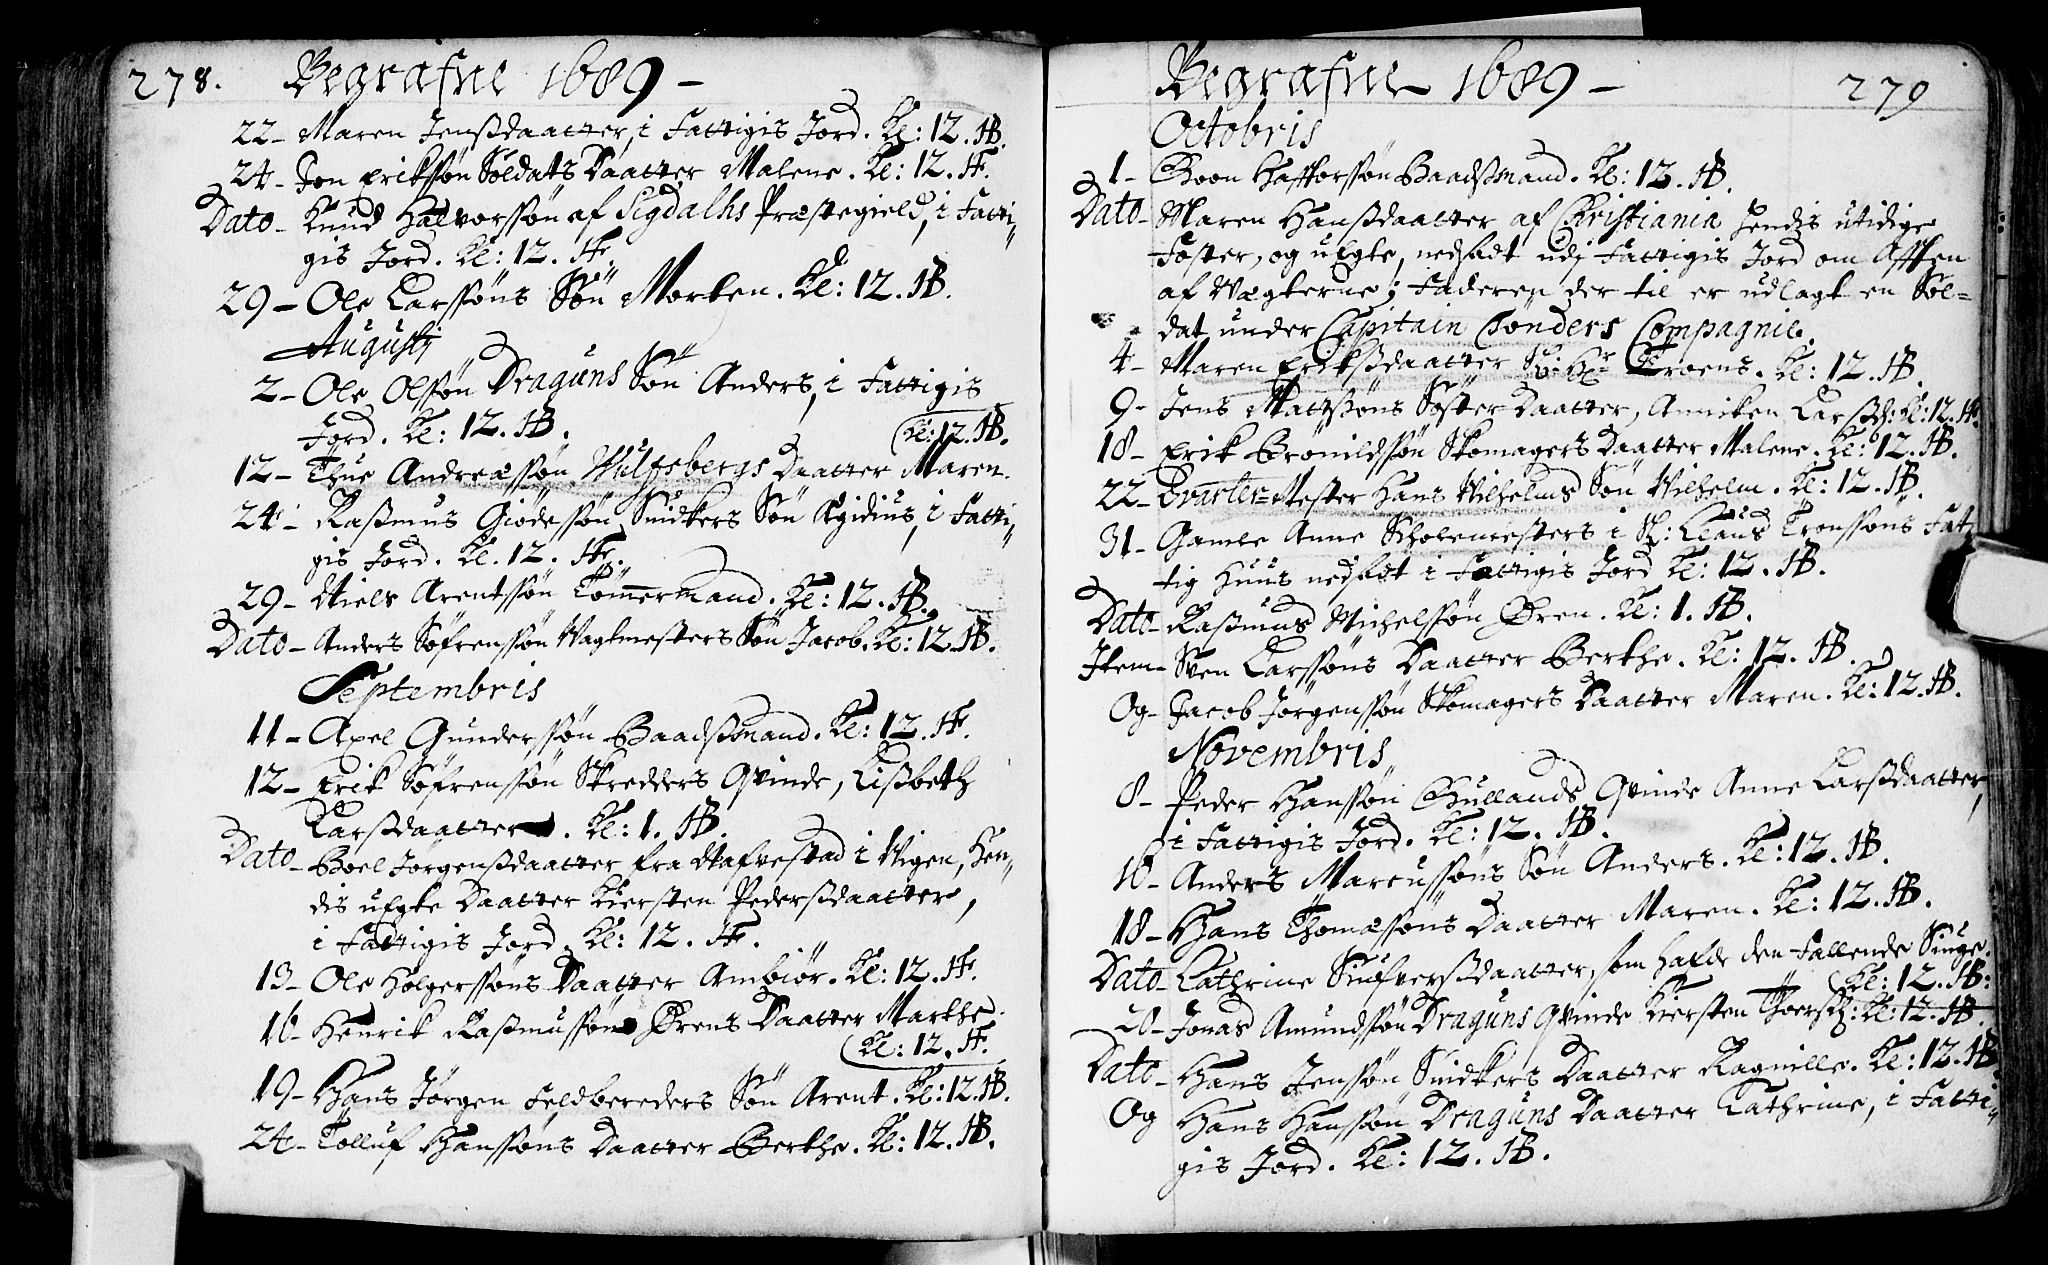 278. Begrafne 1689 –
22 – Maren Jenßdaatter, i Fattigis Jord. Kl: 12. HB.
24 – Jon Erikssøn Soldats Daatter Malene. Kl: 12. HF.
Dato – Knud Halvorssøn af Sigdalhs Præstegield, i Fatti„
gis Jord. Kl: 12. HF.
29 – Ole Larssøns Søn Morten. Kl: 12. HB.
Augusti
2 – Ole Olssøn Draguns Søn Anders, i Fattigis
Jord. Kl: 12. HB.
(Kl: 12. HB.
12 – Thue Andreæssøn Wulfsbergs Daatter Maren.
24 – Raßmus Giødessøn Snidkers Søn Ægidius, i Fatti„
gis Jord. Kl. 12. HF.
29 – Niels Arentssøn Tømmermand. Kl: 12. HB.
Dato – Anders Søfrenssøn Vagtmesters Søn Jacob. Kl: 12. HB.
Septembris
11 – Axel Gunderssøn Baadßmand. Kl: 12. HF.
12 – Erik Søfrenssøn Skredders Qvinde, Lißbeth
Larßdaatter. Kl: 1. HB.
Dato – Boel Jørgenßdaatter fra Nafvestad i Vigen, Hen„
dis uEgte Daatter Kiersten Pederßdaatter,
i Fattigis Jord. Kl: 12. HF.
13 – Ole Holgerssøns Daatter Ambiør. Kl: 12. HF.
16 – Henrik Raßmussøn Ørens Daatter Marthe.
(Kl: 12. HF.
19 – Hans Jørgen Feldbereders Søn Arent. Kl: 12. HB.
24 – Tolluf Hanssøns Daatter Berthe. Kl: 12. HB.
Begrafne 1689 – 279
Octobris
1 – Boon Haftorssøn Baadßmand. Kl: 12. HB.
Dato – Maren Hanßdaatter af Christiania Hendis utidige
Foster, og uEgte, nedsadt udj Fattigis Jord om Afften
af Vægterne; Faderen der til er udlagt en Sol=
dat under Capitain Tønders Compagnie.
4 – Maren Erikßdaatter Troens. Kl: 12. HB.
9 – Jens Mattssøns Søster Daatter, Anniken Larßd: Kl: 12. HF.
18 – Erik Brønildssøn Skomagers Daatter Malene. Kl: 12. HB.
22 – Qvarter=Mester Hans Wilhelms Søn Wilhelm. Kl: 12. HB.
31 – Gamle Anne Scholemesters i Sl: Claus Tronssøns Fat„
tig Huus nedsadt i Fattigis Jord Kl: 12. HB.
Dato – Raßmus Michelssøn Øren. Kl: 1. HB.
Item – Sven Larssøns Daatter Berthe. Kl: 12. HB.
Og – Jacob Jørgenssøn Skomagers Daatter Maren. Kl: 12. HB.
Novembris
8 – Peder Hanssøn Gullands Qvinde Anne Larßdaatter,
i Fattigis Jord. Kl: 12. HB.
10 – Anders Marcussøns Søn Anders. Kl: 12. HB.
18 – Hans Thomæssøns Daatter Maren. Kl: 12. HB.
Dato – Cathrine Siufverßdaatter, som hafde den Fallende Siuge.
(Kl: 12. HB:
20 – Jonas Amundssøn Draguns Qvinde Kiersten Thoersd: Kl: 12. HB.
Dato – Hans Jenssøn Snidkers Daatter Ragnille. Kl: 12. HB
Og Hans Hanssøn Draguns Daatter Cathrine, i Fatti„
gis Jord. Kl: 12. HB.